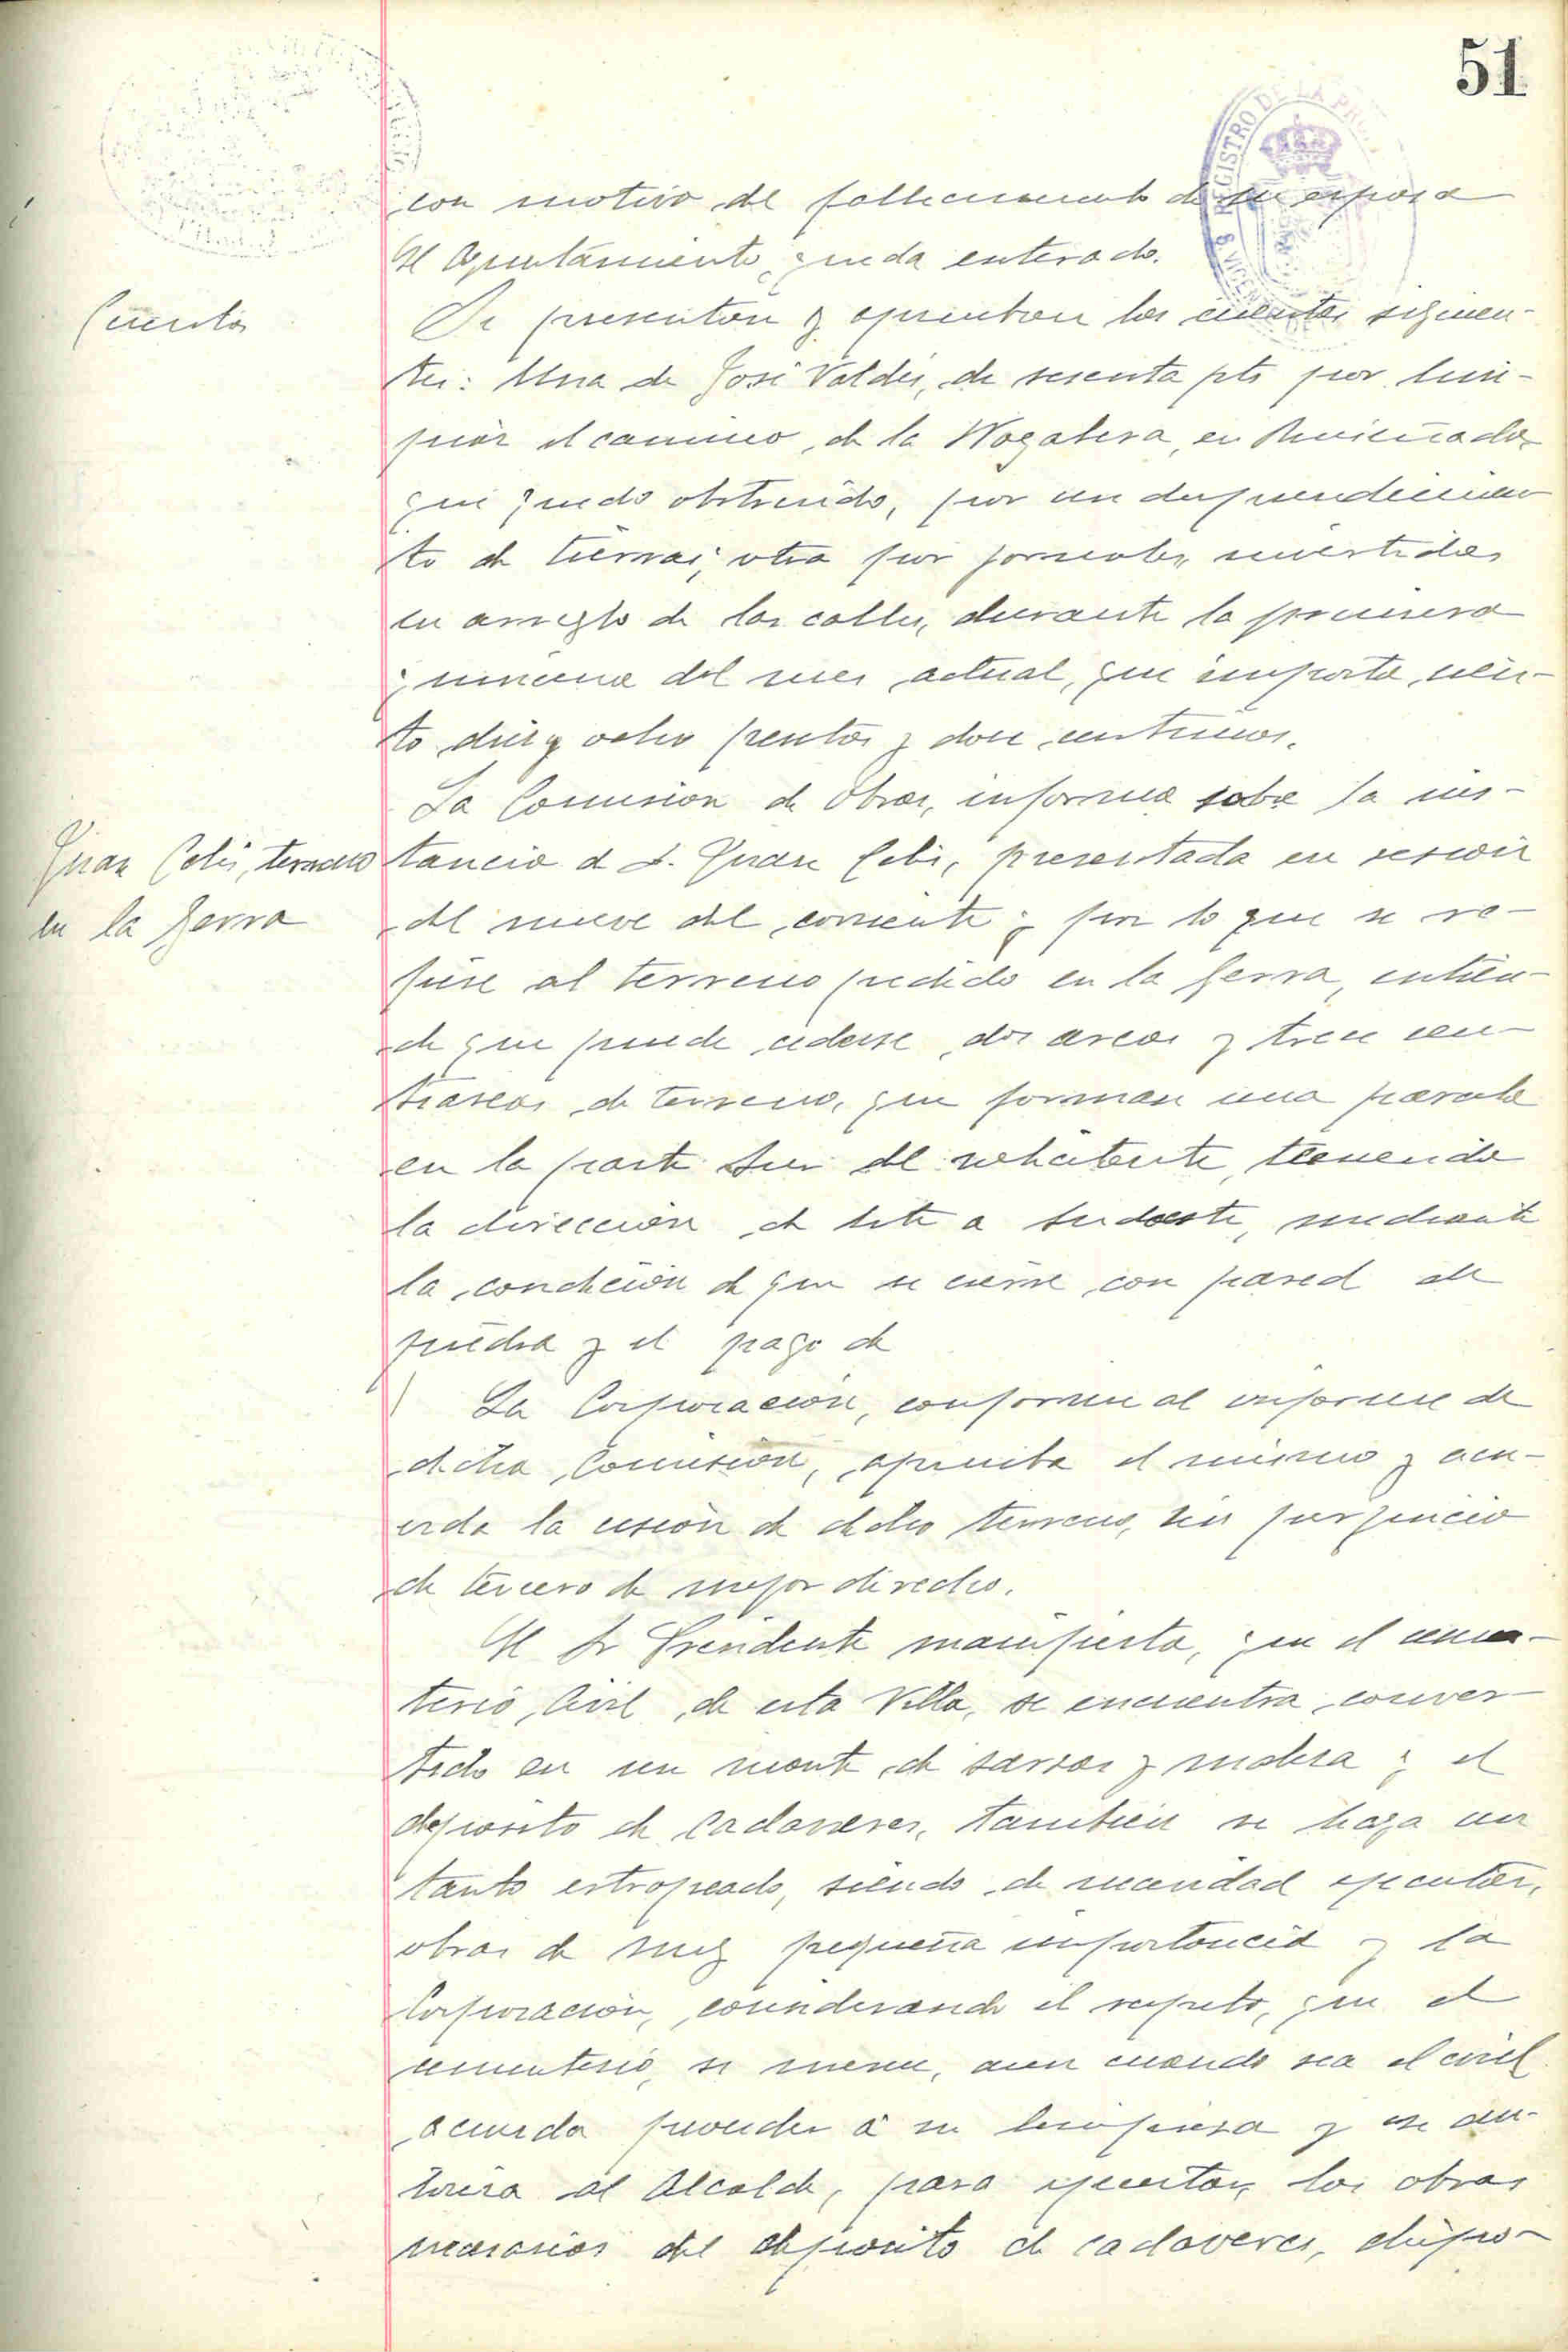 51
REGISTRO DE LA PRO
con motivo del fallecimiento de su esposa
El Ayuntamiento, queda enterado.
Cuentas
Se presentan y aprueban las cuentas siguien-
tes: Una de José Valdés, de sesenta pts por lim-
piar el camino, de la Nogalera, en
que quedo obstruido, por un desprendimien
to de tierras; otra por jornales, invertidos
en arreglo de las calles, durante la primera
quincena del mes actual, que importa, cien-
to diez y ocho pesetas y doce centimos.
La Comision de Obras, informa sobre la ins-
Juan Celis, terreno
en la Serra
tancia de D. Juan Celis, presentada en sesion
del nueve del corriente; por lo que se re-
fiere al terreno pedido en la Serra, entien-
de que puede cederse, dos areas y trece cen-
tiareas, de terreno, que forman una parcela
en la parte Sur del solicitante, teniendo
la dirección de Este a Sudoeste, mediante
la condición de que se cierre con pared de
piedra y el pago de
La Corporación, conforme al informe de
dicha Comision, aprueba el mismo y acu-
erda la cesión de dicho terreno, sin perjuicio
de tercero de mejor direcho.
El Sr Presidente manifiesta, que el cemen-
terio, Civil, de esta Villa, se encuentra, conver-
tido en un monte, de sarzas y maleza; el
deposito de Cadaveres, tambien se haya un
tanto estropeado, siendo de necesidad ejecutar,
obras de muy pequeña importancia y la
Corporación, considerando el respeto, que el
cementerio, se merece, aun cuando sea el civil
acuerda proceder á su limpieza y se au-
toriza al Alcalde, para ejecutar, las obras
necesarias del deposito de cadaveres, dispo-